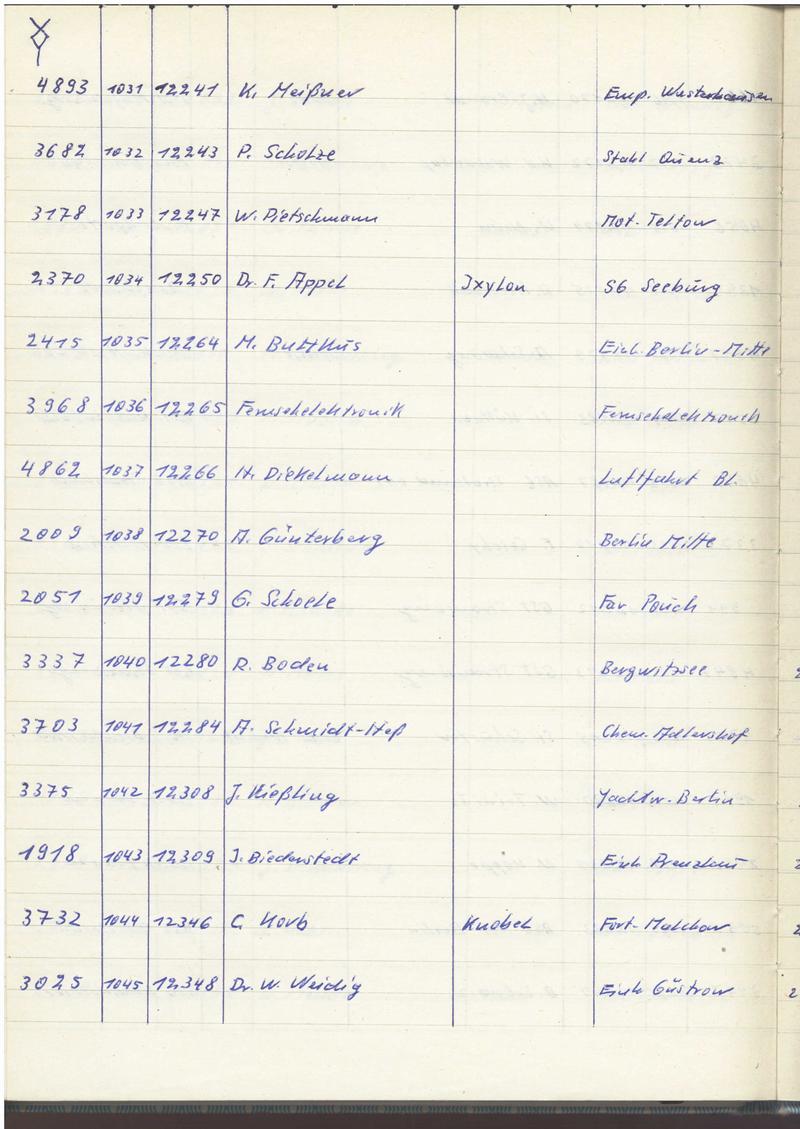 4893 1031 12241 K. Meißner Emp. Wusterhausen
3682 1032 12243 P. Scholze Stahl Quenz
3178 1033 12247 W. Pietschmann Mot. Teltow
2370 1034 12250 Dr. F. Appel Ixylon SG Seeburg
2415 1035 12264 M. Butthus Einh. Berlin-Mitte
3968 1036 12265 Fernsehelektronik Fernsehelektronik
4862 1037 12266 H. Diekelmann Luftfahrt Bl.
2009 1038 12270 A. Günterberg Berlin Mitte
2051 1039 12279 G. Schoele Far Pouch
3337 1040 12280 R. Boden Bergwitzsee
3703 1041 12284 A. Schmidt-Heß Chem. Adlershof
3375 1042 12308 J. Kießling Yachtw. Berlin
1918 1043 12309 J. Biederstedt Einh Prenzlau
3732 1044 12346 C. Korb Knobel Fort. Malchow
3025 1045 12348 Dr. W. Weidig Einh Güstrow